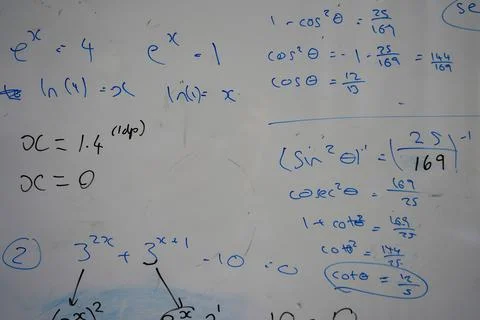 e^x = 4   e^x = 1
ln(4) = x   ln(1) = x
x = 1.4 (1dp)
x = 0
② 3^{2x} + 3^{x+1} - 10 = 0
1 - cos²θ = 25/169
cos²θ = -1 - 25/169 = 144/169
cosθ = 12/13
(sin²θ)^{-1} = (25/169)^{-1}
cosec²θ = 169/25
1 + cot²θ = 169/25
cotθ² = 144/25
cotθ = 12/5